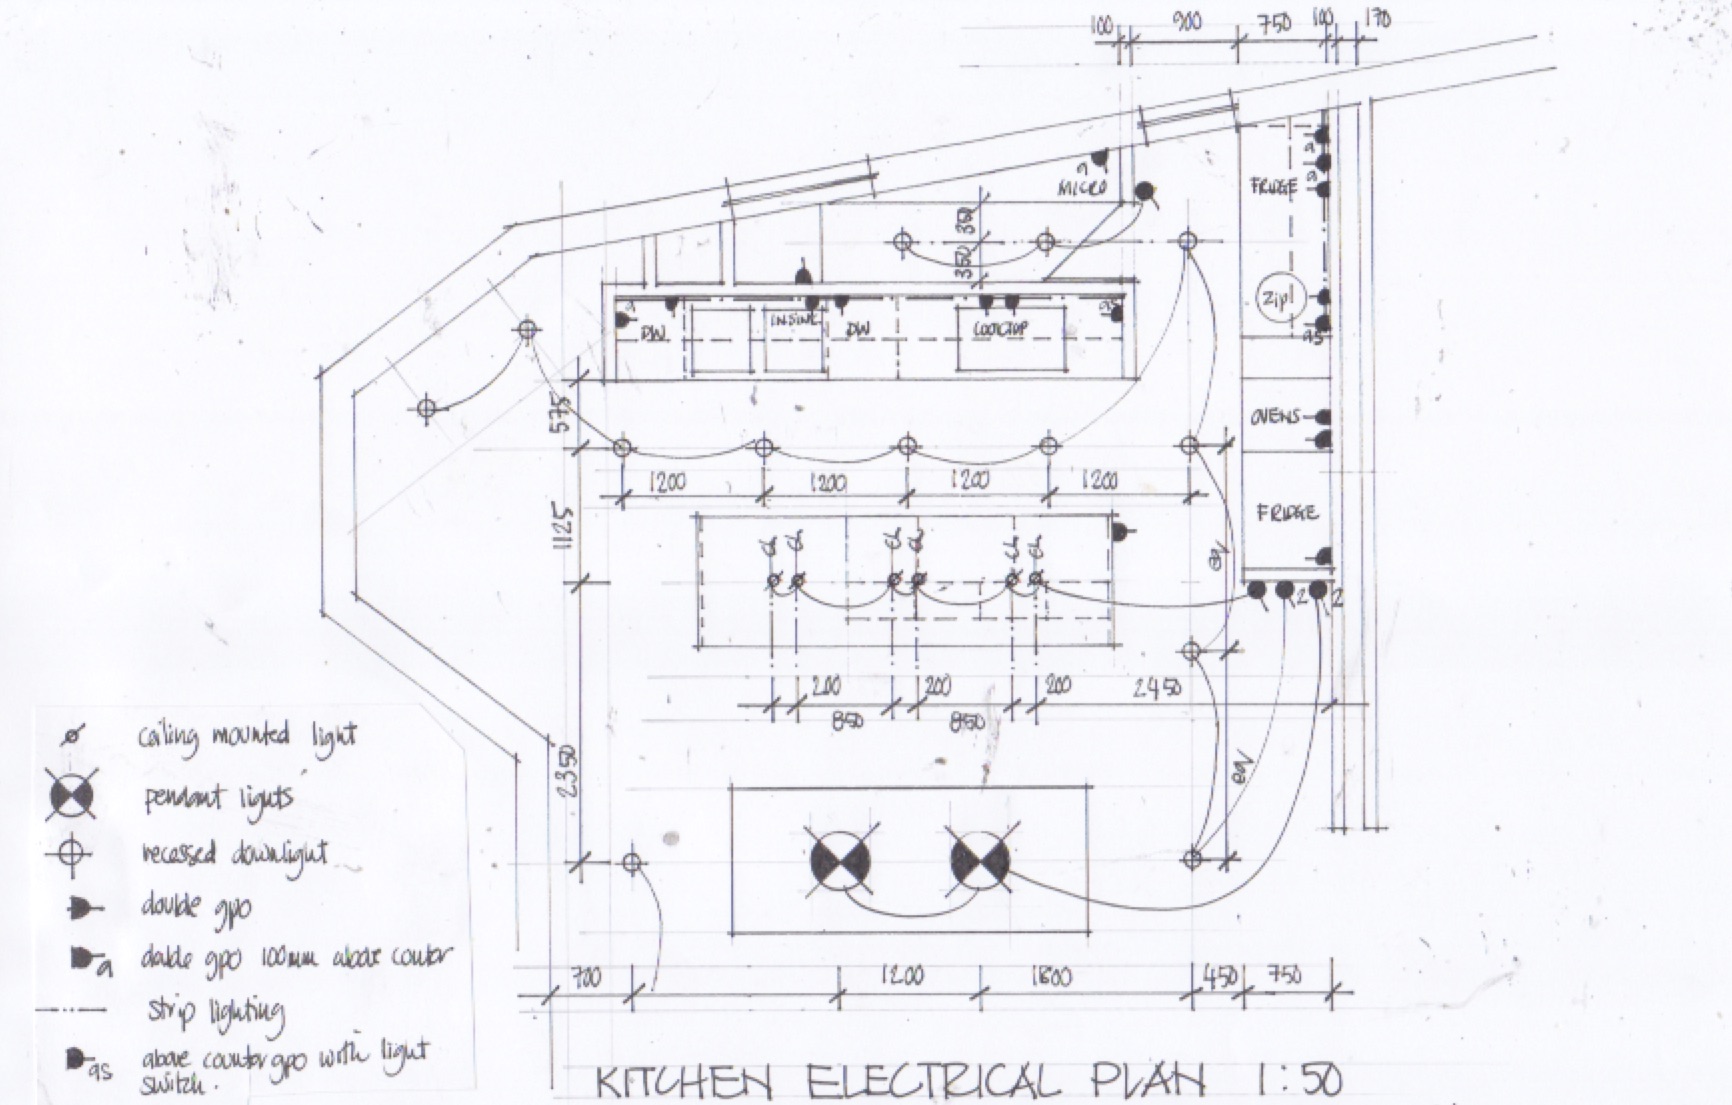 100 900 750 100 170
a
MICRO
350
350
a
FRIDGE
a
zip
as
a
DW
INSINK
DW
COOKTOP
as
575
OVENS
1200 1200 1200 1200
FRIDGE
1125
CL CL CL CL CL CL
eq
2 2
200 200 200 2450
850 850
eq
2350
ceiling mounted light
pendant lights
recessed downlight
double gpo
a double gpo 100mm above counter
strip lighting
as above counter gpo with light
switch.
700 1200 1800 450 750
KITCHEN ELECTRICAL PLAN 1:50